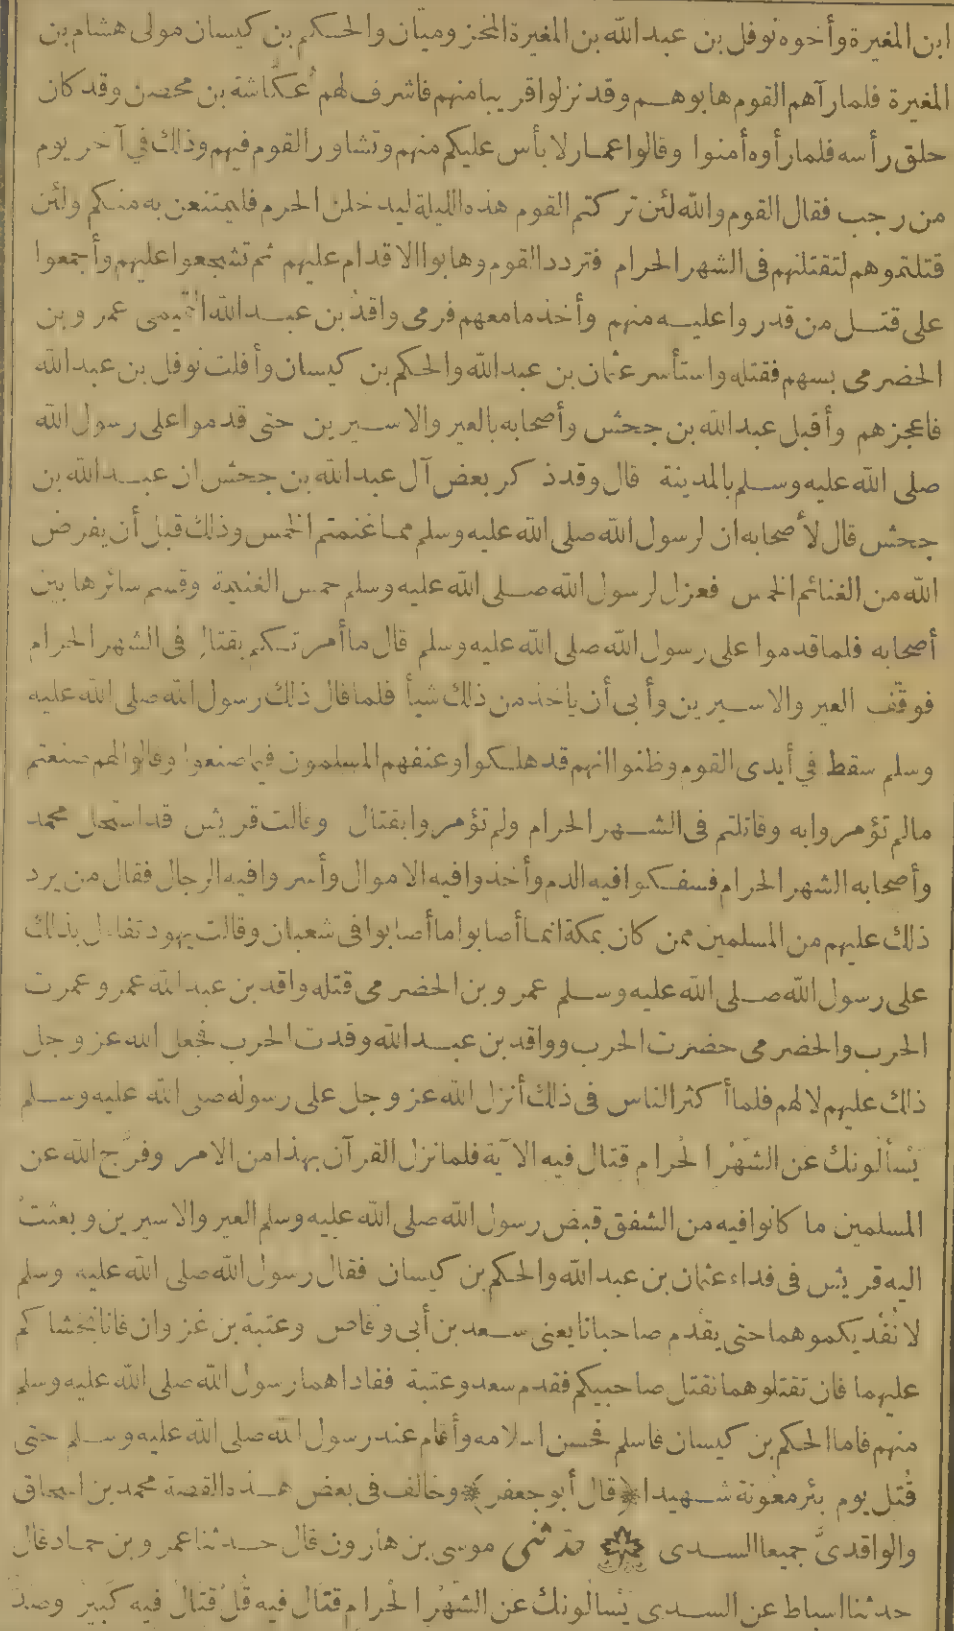 ابن المغيرة وأخوه نوفل بن عبد الله بن المغيرة المخزوميان والحكم بن كيسان مولى هشام بن
المغيرة فلما رآهم القوم هابوهم وقد نزلوا قريبا منهم فاشرف لهم عكاشة بن محصن وقد كان
حلق رأسه فلما رأوه أمنوا وقالوا عمار لا بأس عليكم منهم وتشاور القوم فيهم وذلك في آخر يوم
من رجب فقال القوم والله لئن تركتم القوم هذه الليلة ليدخلن الحرم فليمتنعن به منكم ولئن
قتلتموهم لتقتلنهم فى الشهر الحرام فتردد القوم وهابوا الاقدام عليهم ثم تشجعوا عليهم وأجمعوا
على قتل من قدروا عليه منهم وأخذ ما معهم فرمى واقد بن عبد الله التميمى عمرو بن
الحضرمى بسهم فقتله واستأسر عثمان بن عبد الله والحكم بن كيسان وأفلت نوفل بن عبد الله
فاعجزهم وأقبل عبد الله بن جحش وأصحابه بالعير والاسيرين حتى قدموا على رسول الله
صلى الله عليه وسلم بالمدينة قال وقد ذكر بعض آل عبد الله بن جحش ان عبد الله بن
جحش قال لأصحابه ان لرسول الله صلى الله عليه وسلم مما غنمتم الخمس وذلك قبل أن يفرض
الله من الغنائم الخمس فعزل لرسول الله صلى الله عليه وسلم خمس الغنيمة وقسم سائرها بين
أصحابه فلما قدموا على رسول الله صلى الله عليه وسلم قال ما أمرتكم بقتال فى الشهر الحرام
فوقف العير والاسيرين وأبى أن يأخذ من ذلك شيأ فلما قال ذلك رسول الله صلى الله عليه
وسلم سقط في أيدى القوم وظنوا انهم قد هلكوا وعنفهم المسلمون فيما صنعوا وقالوا لهم صنعتم
مالم تؤمروا به وقاتلتم فى الشهر الحرام ولم تؤمروا بقتال وقالت قريش قد استحل محمد
وأصحابه الشهر الحرام فسفكوا فيه الدم وأخذوا فيه الاموال وأسروا فيه الرجال فقال من يرد
ذلك عليهم من المسلمين ممن كان بمكة انما أصابوا ما أصابوا فى شعبان وقالت يهود تفاءل بذلك
على رسول الله صلى الله عليه وسلم عمرو بن الحضرمى قتله واقد بن عبد الله عمرو عمرت
الحرب والحضرمى حضرت الحرب وواقد بن عبد الله وقدت الحرب فجعل الله عز وجل
ذلك عليهم لا لهم فلما أكثر الناس فى ذلك أنزل الله عز وجل على رسوله صلى الله عليه وسلم
يَسْألونك عن الشَّهْر الحْرام قتال فيه الآية فلما نزل القرآن بهذا من الامر وفرَّج الله عن
المسلمين ما كانوا فيه من الشفق قبض رسول الله صلى الله عليه وسلم العير والاسيرين وبعثتْ
اليه قريش فى فداء عثمان بن عبد الله والحكم بن كيسان فقال رسول الله صلى الله عليه وسلم
لا نُفْديكموهما حتى يقدم صاحبانا يعنى سعد بن أبى وقاص وعتبة بن غزوان فانا نخشاكم
عليهما فان تقتلوهما نقتل صاحبيكم فقدم سعد وعتبة ففاداهما رسول الله صلى الله عليه وسلم
منهم فاما الحكم بن كيسان فاسلم فحسن اسلامه وأقام عند رسول الله صلى الله عليه وسلم حتى
قُتل يوم بئر معونة شهيدا (قال أبو جعفر) وخالف فى بعض هذه القصة محمد بن اسحاق
والواقدىَّ جميعا السدى حدثنى موسى بن هارون قال حدثنا عمرو بن حماد قال
حدثنا اسباط عن السدى يَسْألونك عن الشَّهْر الحْرام قتال فيه قُلْ قتال فيه كَبير وصدّ